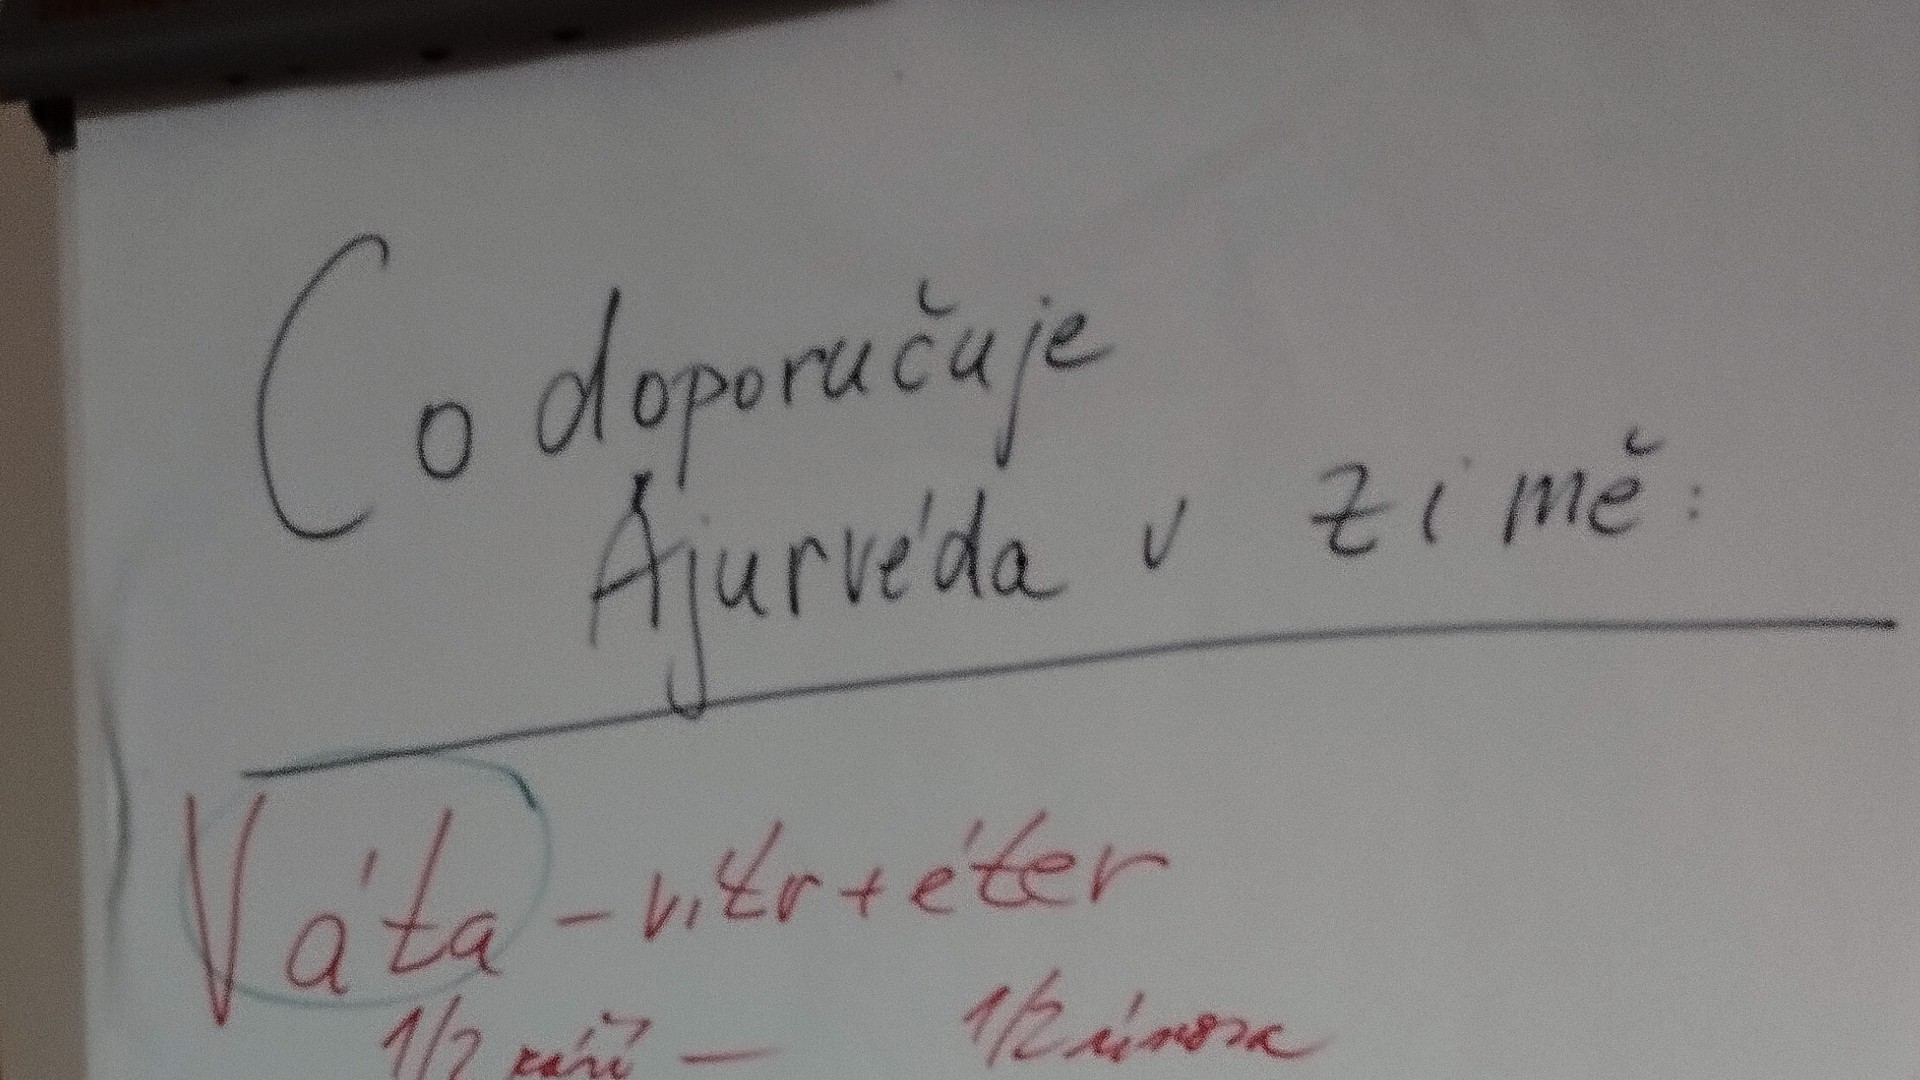 Co doporučuje
Ajurvéda v zimě:
Váta - vítr + éter
1/2 září - 1/2 února